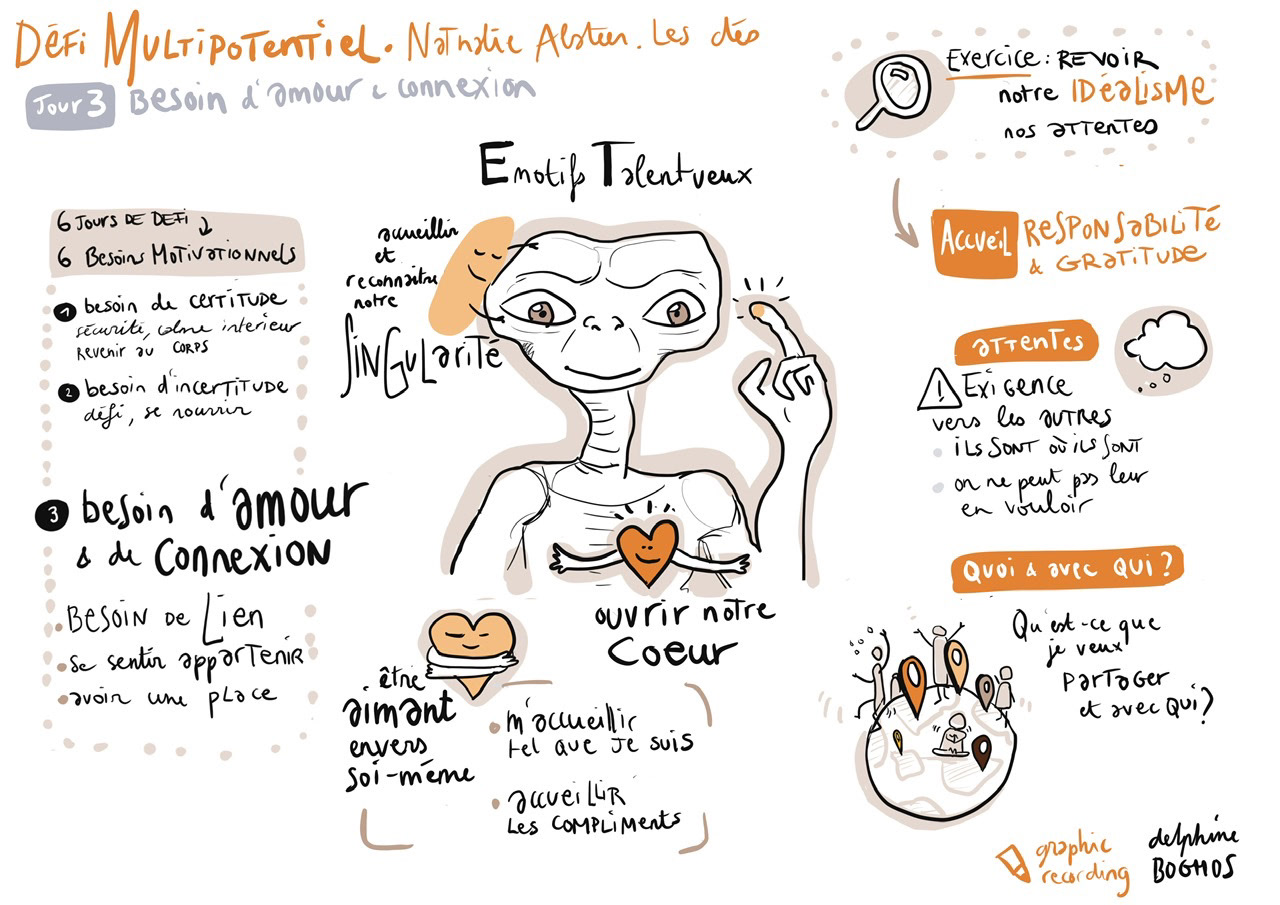 Défi Multipotentiel. Nathalie Alsteen. Les clés
Jour 3 Besoin d'amour & connexion
Exercice : REVOIR
notre IDÉALISME
nos attentes
Emotifs Talentueux
6 JOURS DE DEFI
6 Besoins MOTIVATIONNELS
1 besoin de CERTITUDE
sécurité, calme intérieur
Revenir au CORPS
2 besoin d'incertitude
défi, se nourrir
3 besoin d'amour
& de Connexion
BESOIN DE Lien
• se sentir appartenir
• avoir une place
accueillir
et
reconnaître
notre
SINGULARITÉ
ouvrir notre
Coeur
être
aimant
envers
soi-même
• m'accueillir
tel que je suis
• accueillir
les COMPLIMENTS
Accueil RESPONSABILITÉ
& GRATITUDE
attentes
! Exigence
vers les AUTRES
• ils SONT où ils SONT
• on ne peut pas leur
en vouloir
Quoi & avec QUI ?
Qu'est-ce que
je veux
PARTAGER
et avec QUI ?
graphic
recording
delphine
BOGHOS